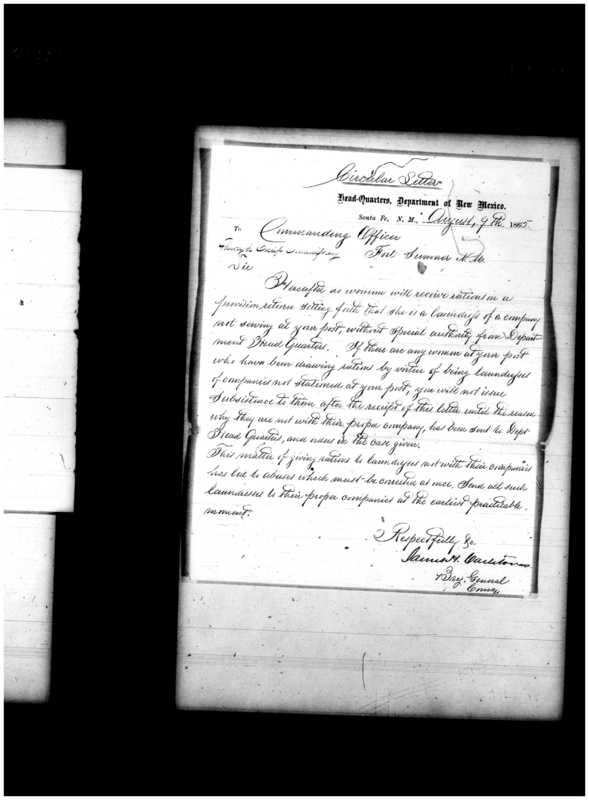 Circular Letter
Head-Quarters, Department of New Mexico.
Santa Fe, N. M., August, 9th, 1865
To Commanding Officer
Fort Sumner N.M.
Sir
Hereafter no woman will receive rations on a
provision return setting forth that she is a laundress of a company
not serving at your post, without special authority from Depart
ment Head Quarters. If there are any women at your post
who have been drawing rations by virtue of being laundresses
of companies not stationed at your post, you will not issue
Subsistence to them after the receipt of this letter until the reason
why they are not with their proper company, has been sent to Dept
Head Quarters, and orders in the case given.
This matter of giving rations to laundresses not with their companies
has led to abuses which must be corrected at once. Send all such
laundresses to their proper companies at the earliest practicable
moment.
Respectfully &c
James H. Carleton
Brig. General
Comdg